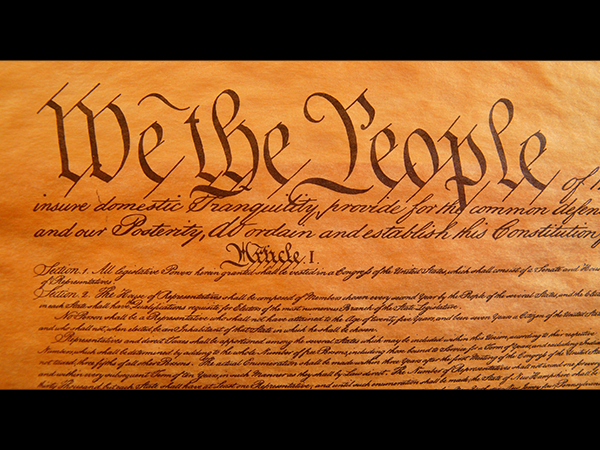 We the People of th
insure domestic Tranquility, provide for the common defen
and our Posterity, do ordain and establish this Constitution f
Article I.
Section 1. All legislative Powers herein granted shall be vested in a Congress of the United States, which shall consist of a Senate and House
of Representatives.
Section 2. The House of Representatives shall be composed of Members chosen every second Year by the People of the several States, and the
in each State shall have the Qualifications requisite for Electors of the most numerous Branch of the State Legislature.
No Person shall be a Representative who shall not have attained to the Age of twenty five Years, and been seven Years a Citizen of the United States,
and who shall not, when elected, be an Inhabitant of that State in which he shall be chosen.
Representatives and direct Taxes shall be apportioned among the several States which may be included within this Union, according to their respective
Numbers, which shall be determined by adding to the whole Number of free Persons, including those bound to Service for a Term of Years, and excluding Indians
not taxed, three fifths of all other Persons. The actual Enumeration shall be made within three Years after the first Meeting of the Congress of the United
and within every subsequent Term of ten Years, in such Manner as they shall by Law direct. The Number of Representatives shall not exceed one for
thirty Thousand, but each State shall have at Least one Representative; and until such enumeration shall be made, the State of New Hampshire shall be